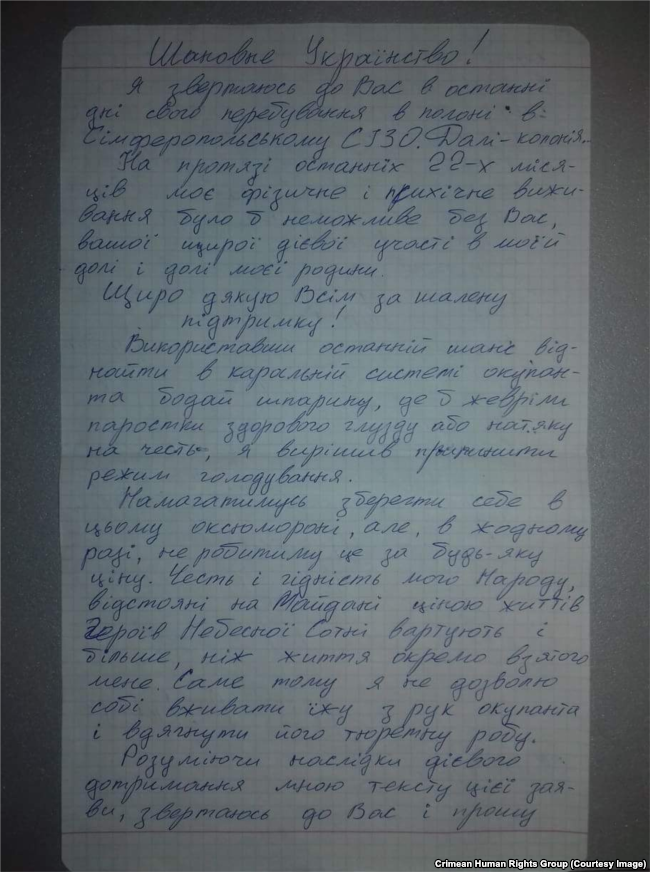 Шановне Українство!
Я звертаюсь до Вас в останні
дні свого перебування в полоні в
Сімферопольському СІЗО. Далі - колонія...
На протязі останніх 22-х міся-
ців моє фізичне і психічне вижи-
вання було б неможливе без Вас,
вашої щирої дієвої участі в моїй
долі і долі моєї родини.
Щиро дякую Всім за шалену
підтримку!
Використавши останній шанс від-
найти в каральній системі окупан-
та бодай шпарину, де б жевріли
паростки здорового глузду або натяку
на честь, я вирішив припинити
режим голодування.
Намагатимусь зберегти себе в
цьому оксюмороні, але, в жодному
разі, не робитиму це за будь-яку
ціну. Честь і гідність мого Народу,
відстояні на Майдані ціною життів
Героїв Небесної Сотні вартують і
більше, ніж життя окремо взятого
мене. Саме тому я не дозволю
собі вживати їжу з рук окупанта
і вдягнути його тюремну робу.
Розуміючи наслідки дієвого
дотримання мною тексту цієї зая-
ви, звертаюсь до Вас і прошу
Crimean Human Rights Group (Courtesy Image)